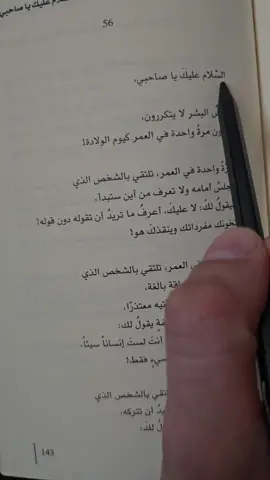 السلام عليك يا صاحبي
56
السَّلام عليكَ يا صاحبي،
البشر لا يتكررون،
مرةً واحدة في العمر كيوم الولادة!
واحدة في العمر، تلتقي بالشخص الذي
أمامه ولا تعرف من أين ستبدأ،
لكَ: لا عليكَ، أعرفُ ما تريدُ أن تقوله دون قوله!
مفرداتك وينقذكَ هو!
العمر، تلتقي بالشخص الذي
بالغة،
معتذرًا،
يقولُ لك:
أنتَ لستَ إنساناً سيئاً،
فقط!
بالشخص الذي
أن تتركه،
لكَ:
143